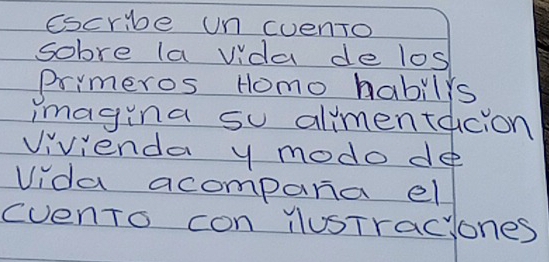 escribe un cuento
sobre la vida de los
primeros Homo habilis
imagina su alimentacion
vivienda y modo de
vida acompaña el
cuento con ilustraciones